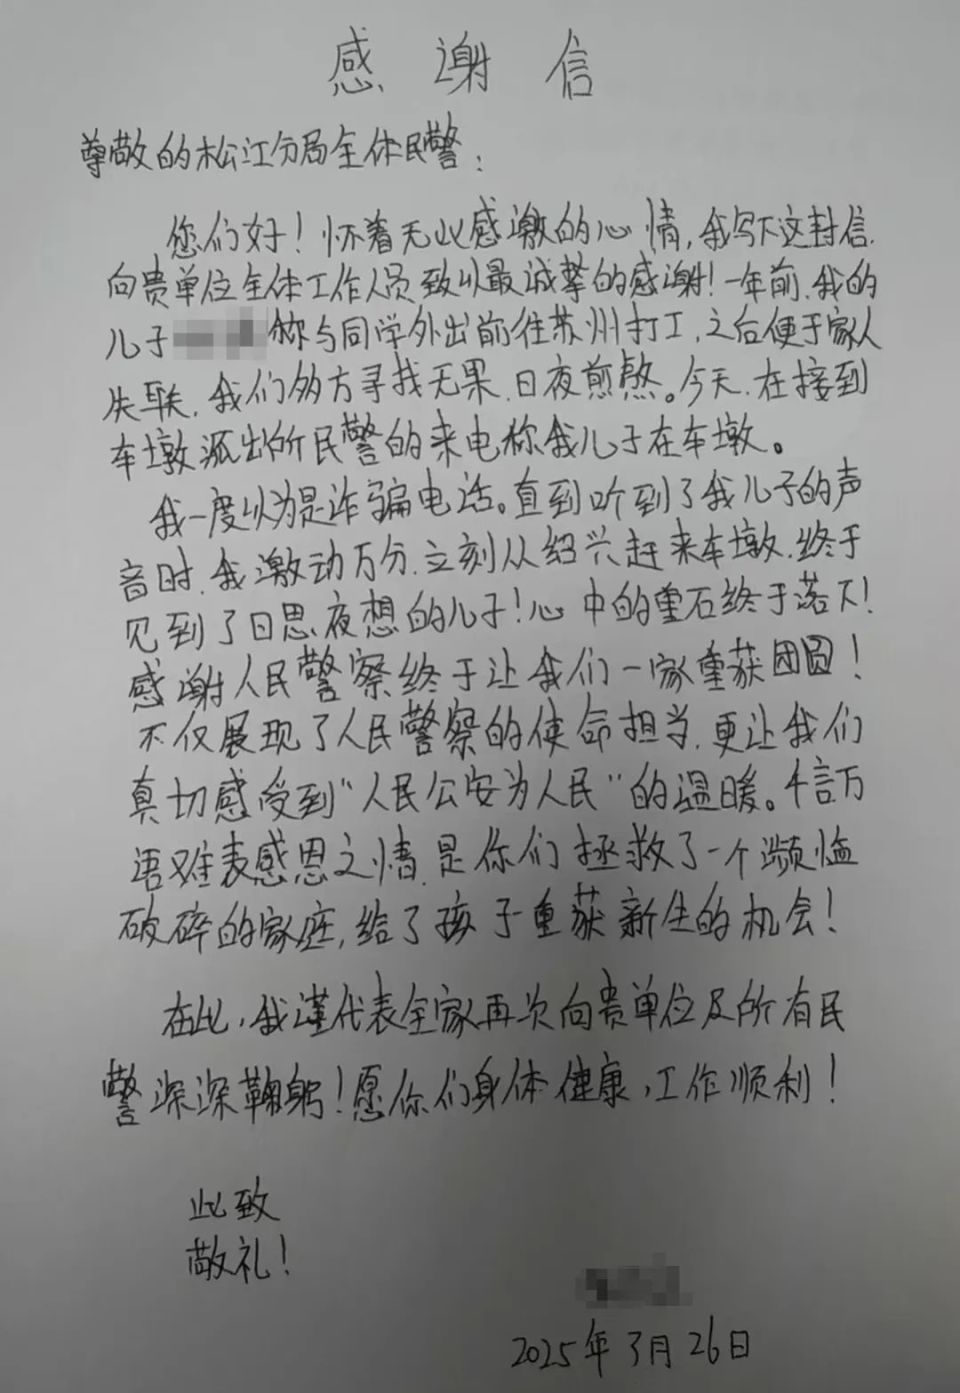 感谢信
尊敬的松江分局全体民警：
您们好！怀着无比感激的心情，我写下这封信，
向贵单位全体工作人员致以最诚挚的感谢！一年前，我的
儿子称与同学外出前往苏州打工，之后便于家人
失联，我们多方寻找无果，日夜煎熬。今天，在接到
车墩派出所民警的来电称我儿子在车墩。
我一度以为是诈骗电话。直到听到了我儿子的声
音时，我激动万分，立刻从绍兴赶来车墩，终于
见到了日思夜想的儿子！心中的重石终于落下！
感谢人民警察终于让我们一家重获团圆！
不仅展现了人民警察的使命担当，更让我们
真切感受到“人民公安为人民”的温暖。千言万
语难表感恩之情，是你们拯救了一个濒临
破碎的家庭，给了孩子重获新生的机会！
在此，我谨代表全家再次向贵单位及所有民
警深深鞠躬！愿你们身体健康，工作顺利！
此致
敬礼！
2025年3月26日